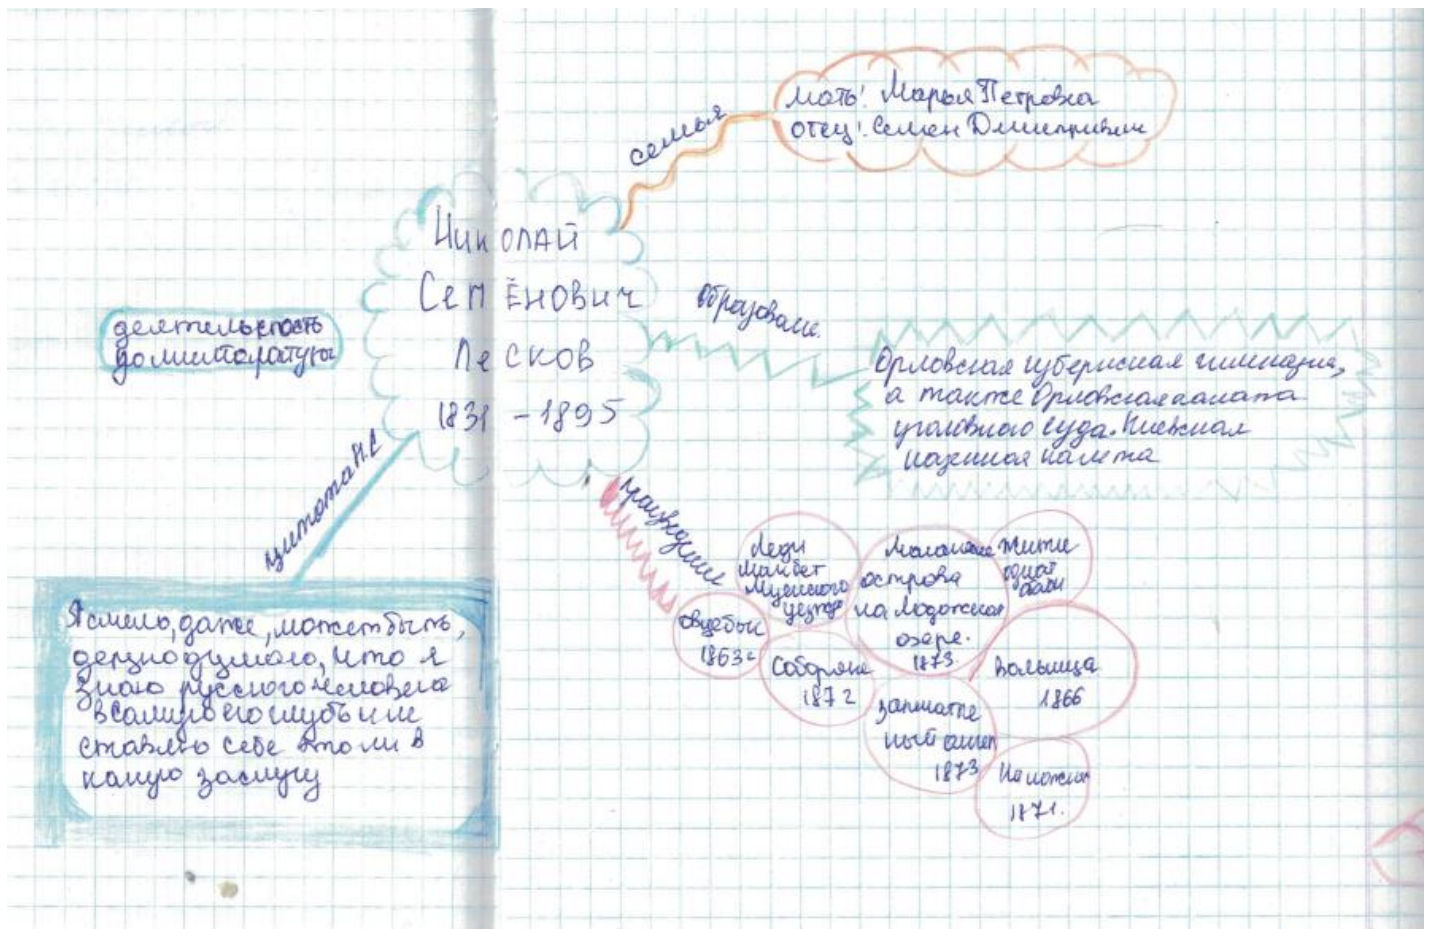 семья
мать: Марья Петровна
отец: Семен Дмитриевич
Николай
Семёнович
Лесков
1831 - 1895
образован.
деятельность
до литературы
Орловская губернская гимназия,
а также Орловская палата
уголовного суда. Киевская
казенная палата
цитата Н.С
Я смело, даже, может быть,
дерзко думаю, что я
знаю русского человека
в самую его глубь и не
ставлю себе этого ни в
какую заслугу
произведения
Леди
Макбет
Мценского
уезда
острова
на Ладожском
озере.
1873.
Житие
одной
бабы
Овцебык
1863г
Соборяне
1872
Запечатле
нный ангел
1873
1866
На ножах
1871.